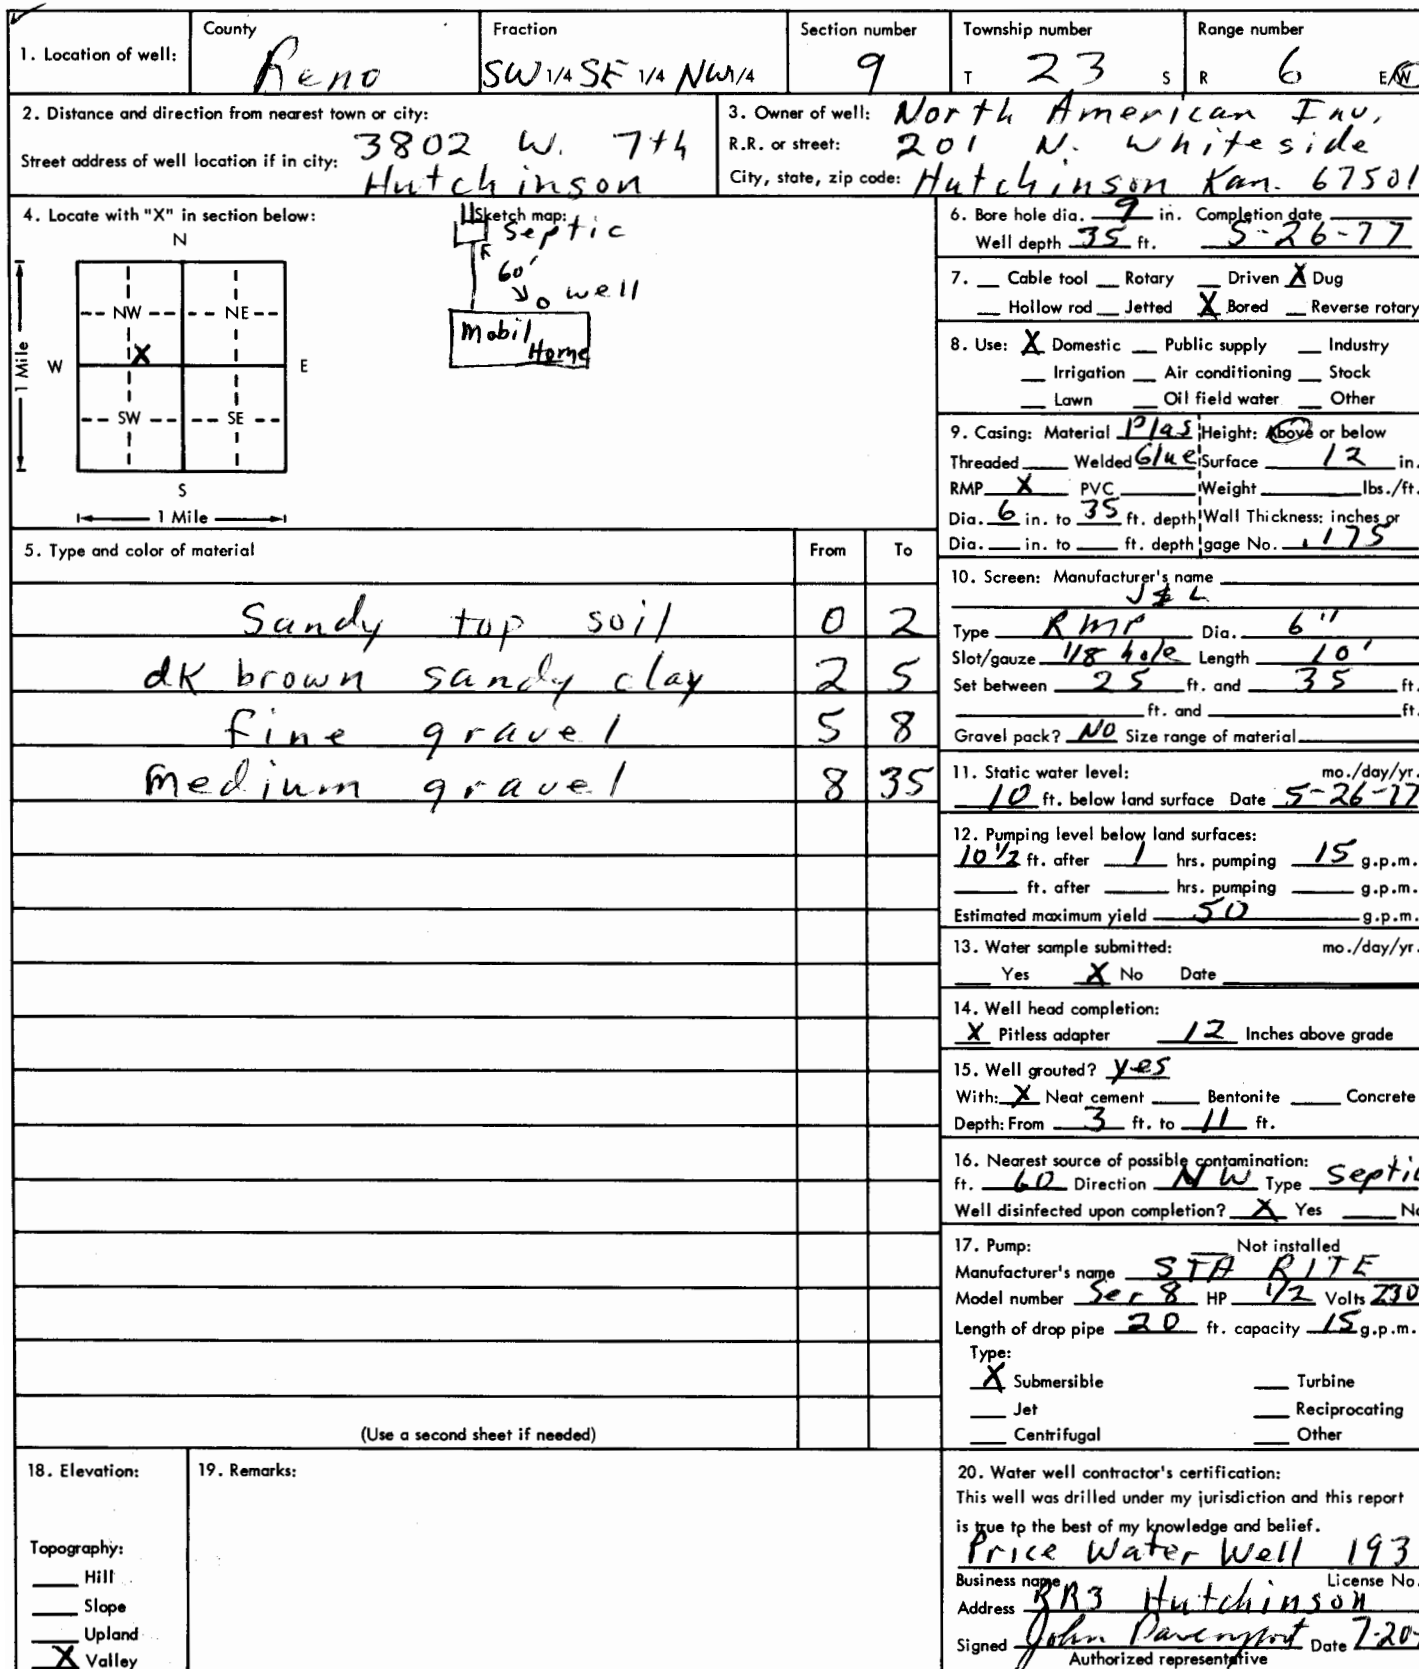 1. Location of well: County Reno Fraction SW 1/4 SE 1/4 NW 1/4 Section number 9 Township number T 23 S Range number R 6 E/W
2. Distance and direction from nearest town or city:
Street address of well location if in city: 3802 W. 7th
Hutchinson
3. Owner of well: North American Inv.
R.R. or street: 201 N. Whiteside
City, state, zip code: Hutchinson Kan. 67501
4. Locate with "X" in section below:
N
NW NE
X
W E
SW SE
S
1 Mile
1 Mile
Sketch map:
Septic
60'
well
Mobil
Home
5. Type and color of material From To
Sandy top soil 0 2
dk brown sandy clay 2 5
fine gravel 5 8
Medium gravel 8 35
(Use a second sheet if needed)
6. Bore hole dia. 9 in. Completion date
Well depth 35 ft. 5-26-77
7. __ Cable tool __ Rotary __ Driven X Dug
__ Hollow rod __ Jetted X Bored __ Reverse rotary
8. Use: X Domestic __ Public supply __ Industry
__ Irrigation __ Air conditioning __ Stock
__ Lawn __ Oil field water __ Other
9. Casing: Material Plas Height: Above or below
Threaded ___ Welded Glue Surface 12 in.
RMP X PVC ___ Weight ___ lbs./ft.
Dia. 6 in. to 35 ft. depth Wall Thickness: inches or
Dia. ___ in. to ___ ft. depth gage No. .175
10. Screen: Manufacturer's name
J & L
Type RMP Dia. 6"
Slot/gauze 1/8 hole Length 10'
Set between 25 ft. and 35 ft.
___ ft. and ___ ft.
Gravel pack? NO Size range of material
11. Static water level: mo./day/yr.
10 ft. below land surface Date 5-26-77
12. Pumping level below land surfaces:
10 1/2 ft. after 1 hrs. pumping 15 g.p.m.
___ ft. after ___ hrs. pumping ___ g.p.m.
Estimated maximum yield 50 g.p.m.
13. Water sample submitted: mo./day/yr.
___ Yes X No Date
14. Well head completion:
X Pitless adapter 12 Inches above grade
15. Well grouted? yes
With: X Neat cement ___ Bentonite ___ Concrete
Depth: From 3 ft. to 11 ft.
16. Nearest source of possible contamination:
ft. 60 Direction NW Type Septic
Well disinfected upon completion? X Yes ___ No
17. Pump: ___ Not installed
Manufacturer's name STA RITE
Model number Ser 8 HP 1/2 Volts 230
Length of drop pipe 20 ft. capacity 15 g.p.m.
Type:
X Submersible ___ Turbine
___ Jet ___ Reciprocating
___ Centrifugal ___ Other
18. Elevation:
Topography:
___ Hill
___ Slope
___ Upland
X Valley
19. Remarks:
20. Water well contractor's certification:
This well was drilled under my jurisdiction and this report
is true to the best of my knowledge and belief.
Price Water Well 193
Business name License No.
Address RR3 Hutchinson
Signed John Davenport Date 7-20-
Authorized representative